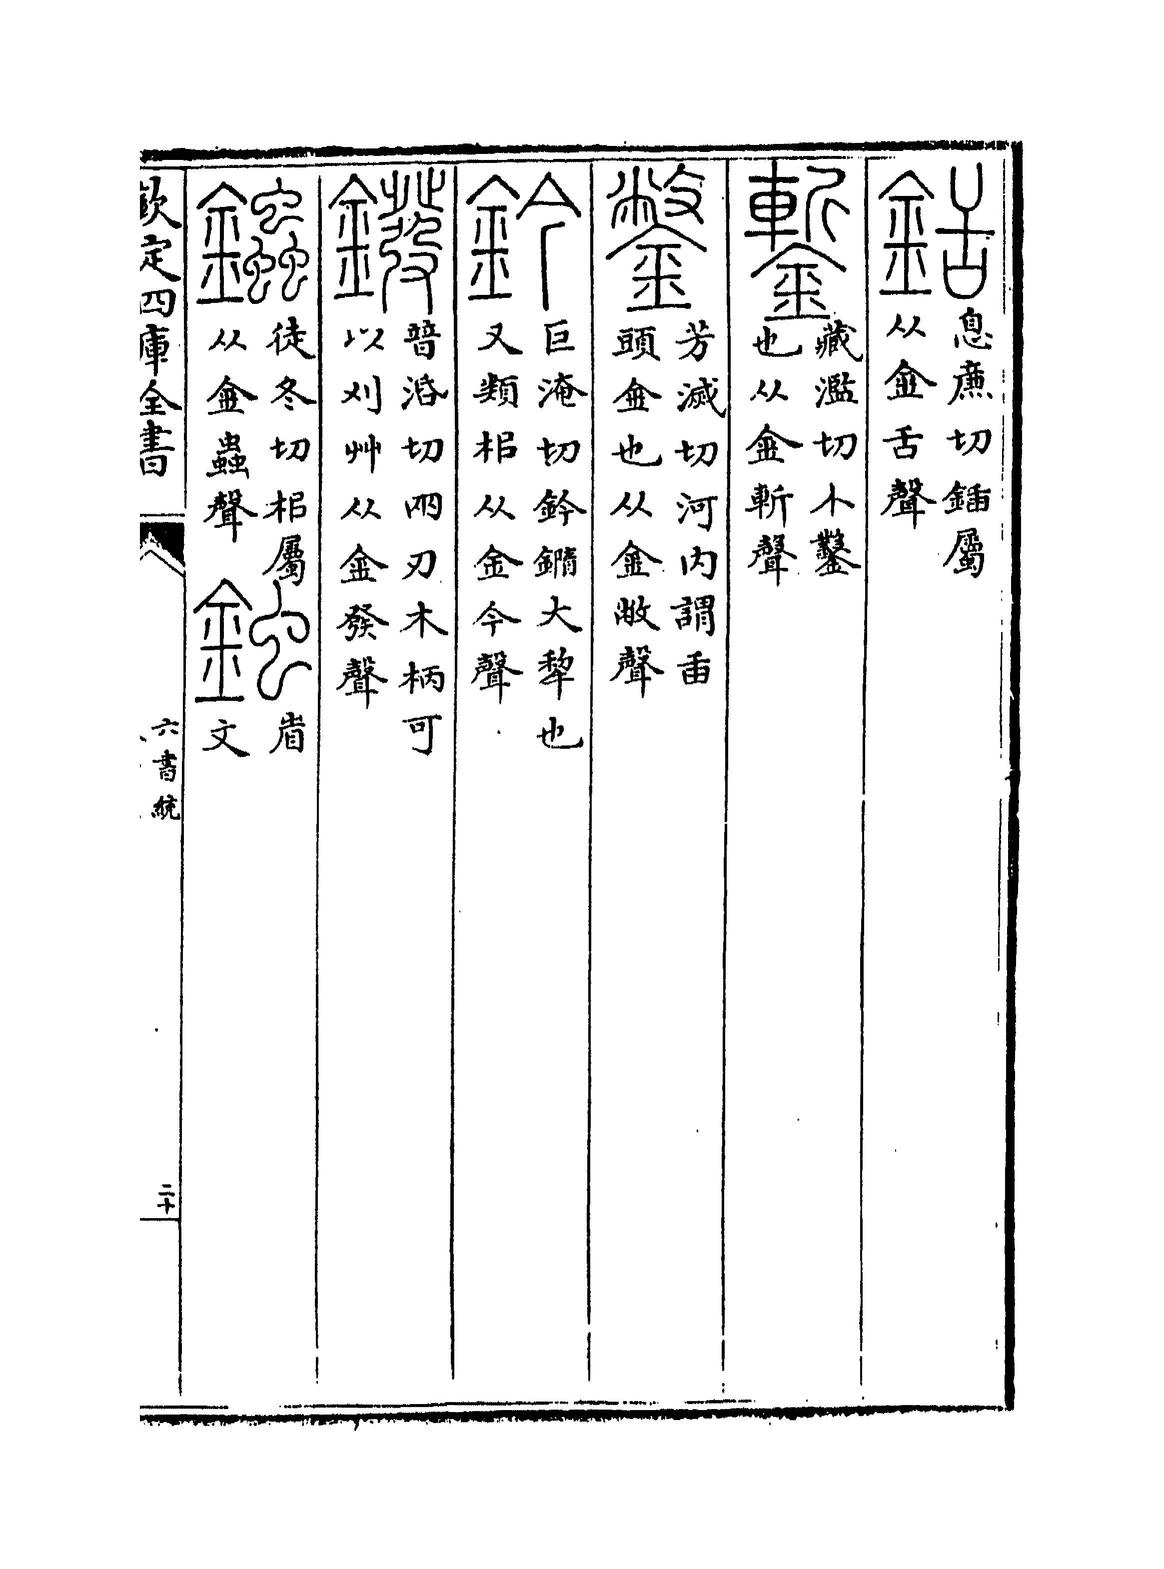 銛息廉切鍤屬
从金舌聲
鏨藏濫切小鑿
也从金斬聲
鐅芳滅切河内謂臿
頭金也从金敝聲
鈐巨淹切鈐鐊大犂也
又類耜从金今聲
鏺普活切兩刃木柄可
以刈艸从金發聲
鑫徒冬切耜屬
从金蟲聲
省
文
欽定四庫全書
六書統
二十